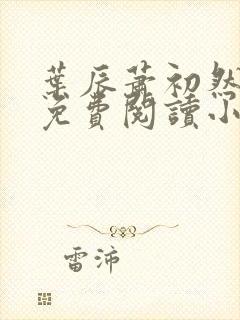 葉辰蕭初然
免費閱讀小
雷沛